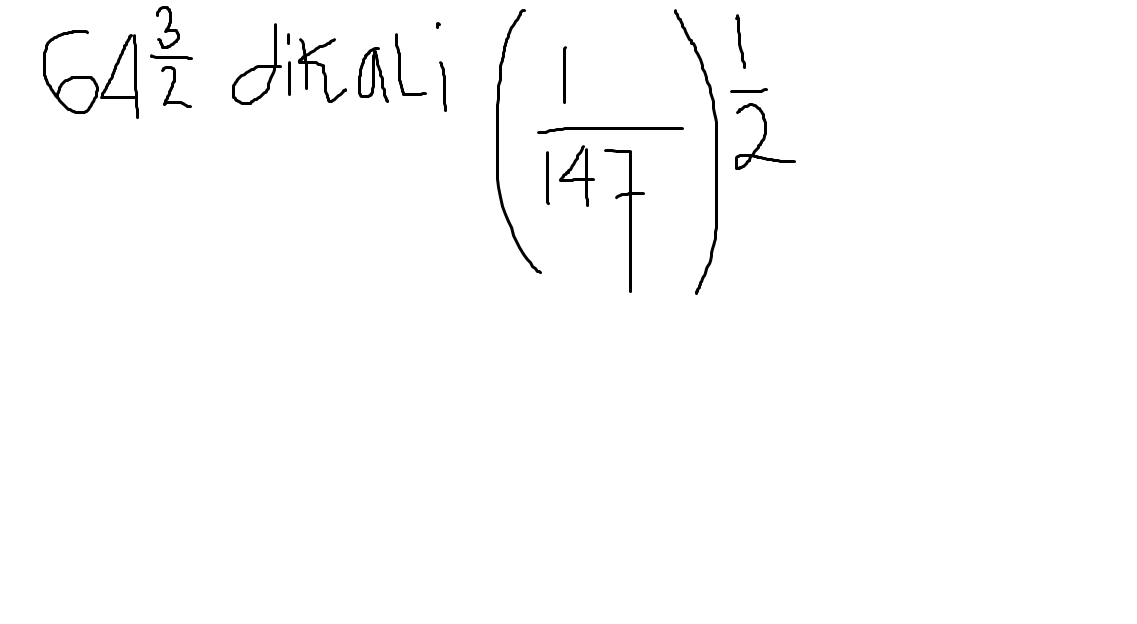 64^(3/2) dikali (1/147)^(1/2)